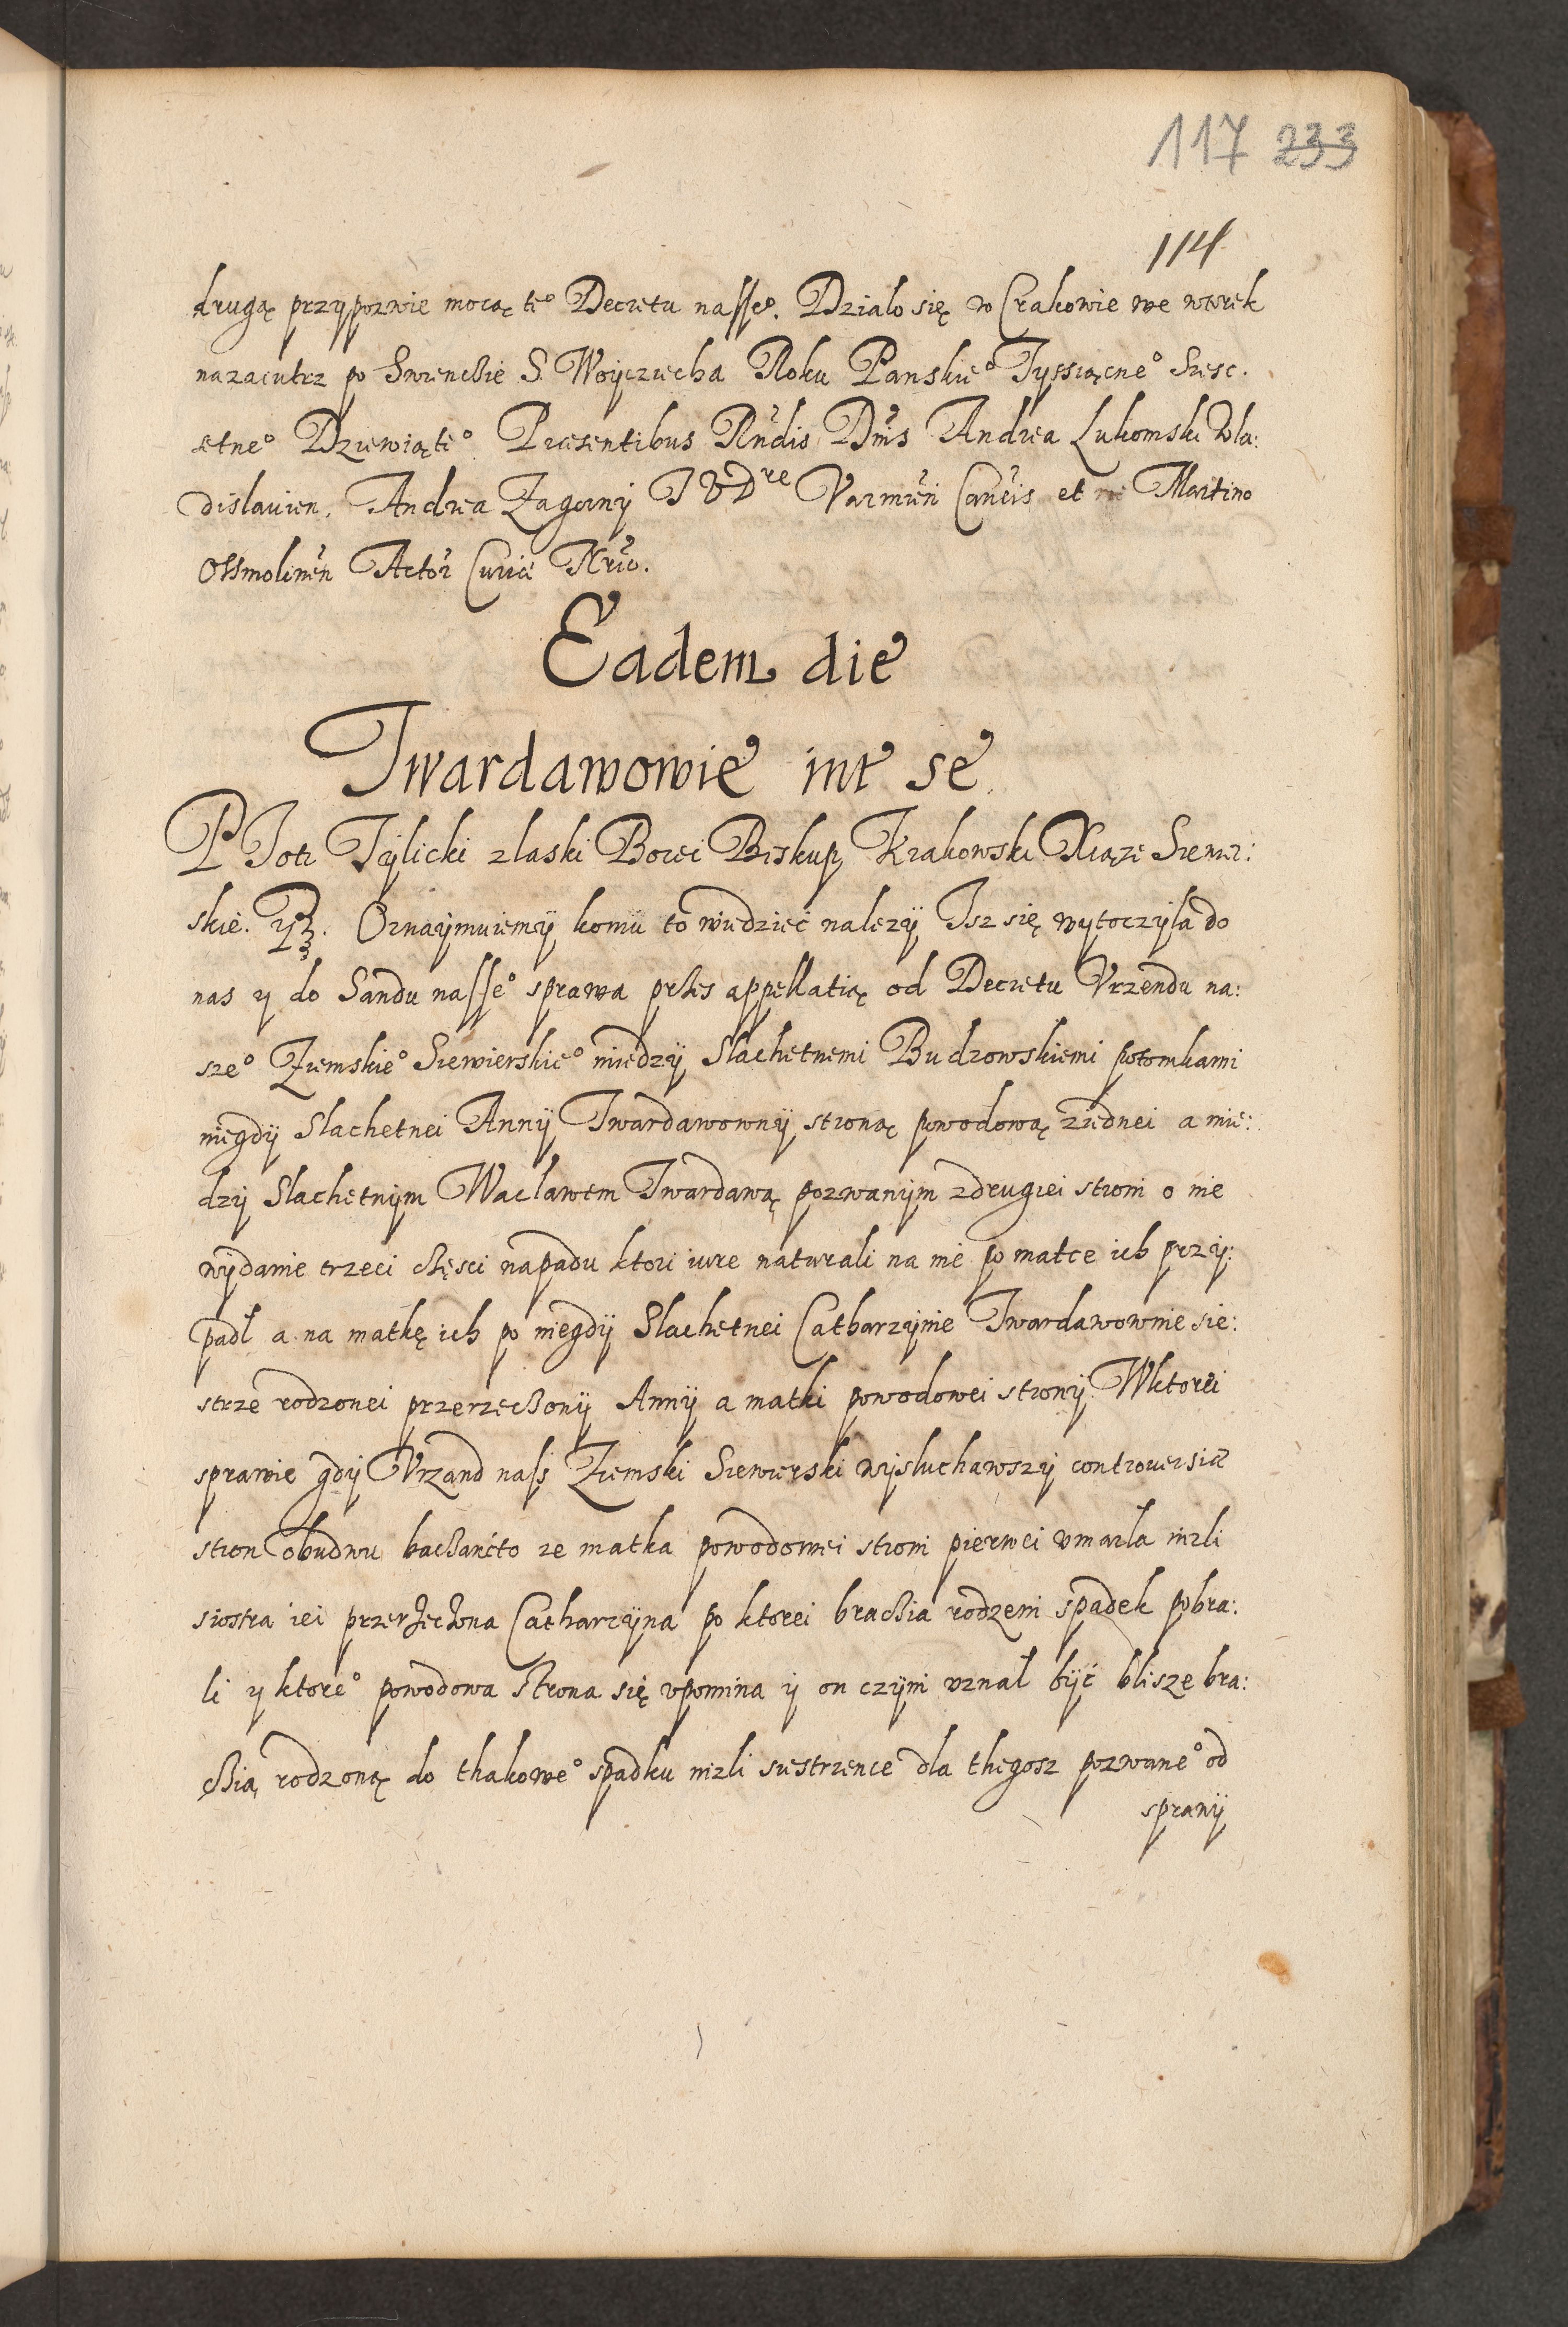 117 233
114
drugą przypozwie mocą te° Decretu nasse°. Dzialo się w Crakowie we wtorek
nazaiutrz po Swienczie S. Woycziecha Roku Panskie° Tyssiącne° Szesc.
setne° Dziewiąte° Praesentibus Rndis Dnis Andrea Lukomski Wla:
dislauien. Andrea Zagorny I V Dre Varmien Cancis et Martino
Ossmolinen Actor Curiae Nrae.
Eadem die
Twardawowie int se
PIotr Tylicki z laski Bozei Biskup Krakowski Xiąze Siewier:
skie. Oznaymuiemy komu to wiedziec nalezy Isz się wytoczyla do
nas y do Sandu nasse° sprawa przes appellatią od Decretu Vrzendu na:
sze° Ziemskie° Siewierskie° miedzy Slachetnemi Budzowskiemi potomkami
niegdy Slachetnei Anny Twardawowny stroną powodową ziednei a mie:
dzy Slachetnym Waclawem Twardawą pozwanym zdrugiei stroni o nie
wydanie trzeci częsci napadu ktori iure naturali na nie po matce ich przy:
padl a na matkę ich po niegdy Slachetnei Catharzynie Twardawownie sie:
strze rodzonei przerzeczony Anny a matki powodowei strony. Wktorei
sprawie gdy Vrzand nass Ziemski Siewierski wysluchawszy controuersia
stron obudwu baczancto ze matka powodowei stroni pierwei vmarla nizli
siostra iei przerzeczona Catharzyna po ktorei braczia rodzeni spadek pobra:
li y ktore° powodowa strona się vpomina y on czyni vznal być blisze bra:
czią rodzoną do thakowe° spadku nizli siestrzence dla thegosz pozwane° od
sprawy